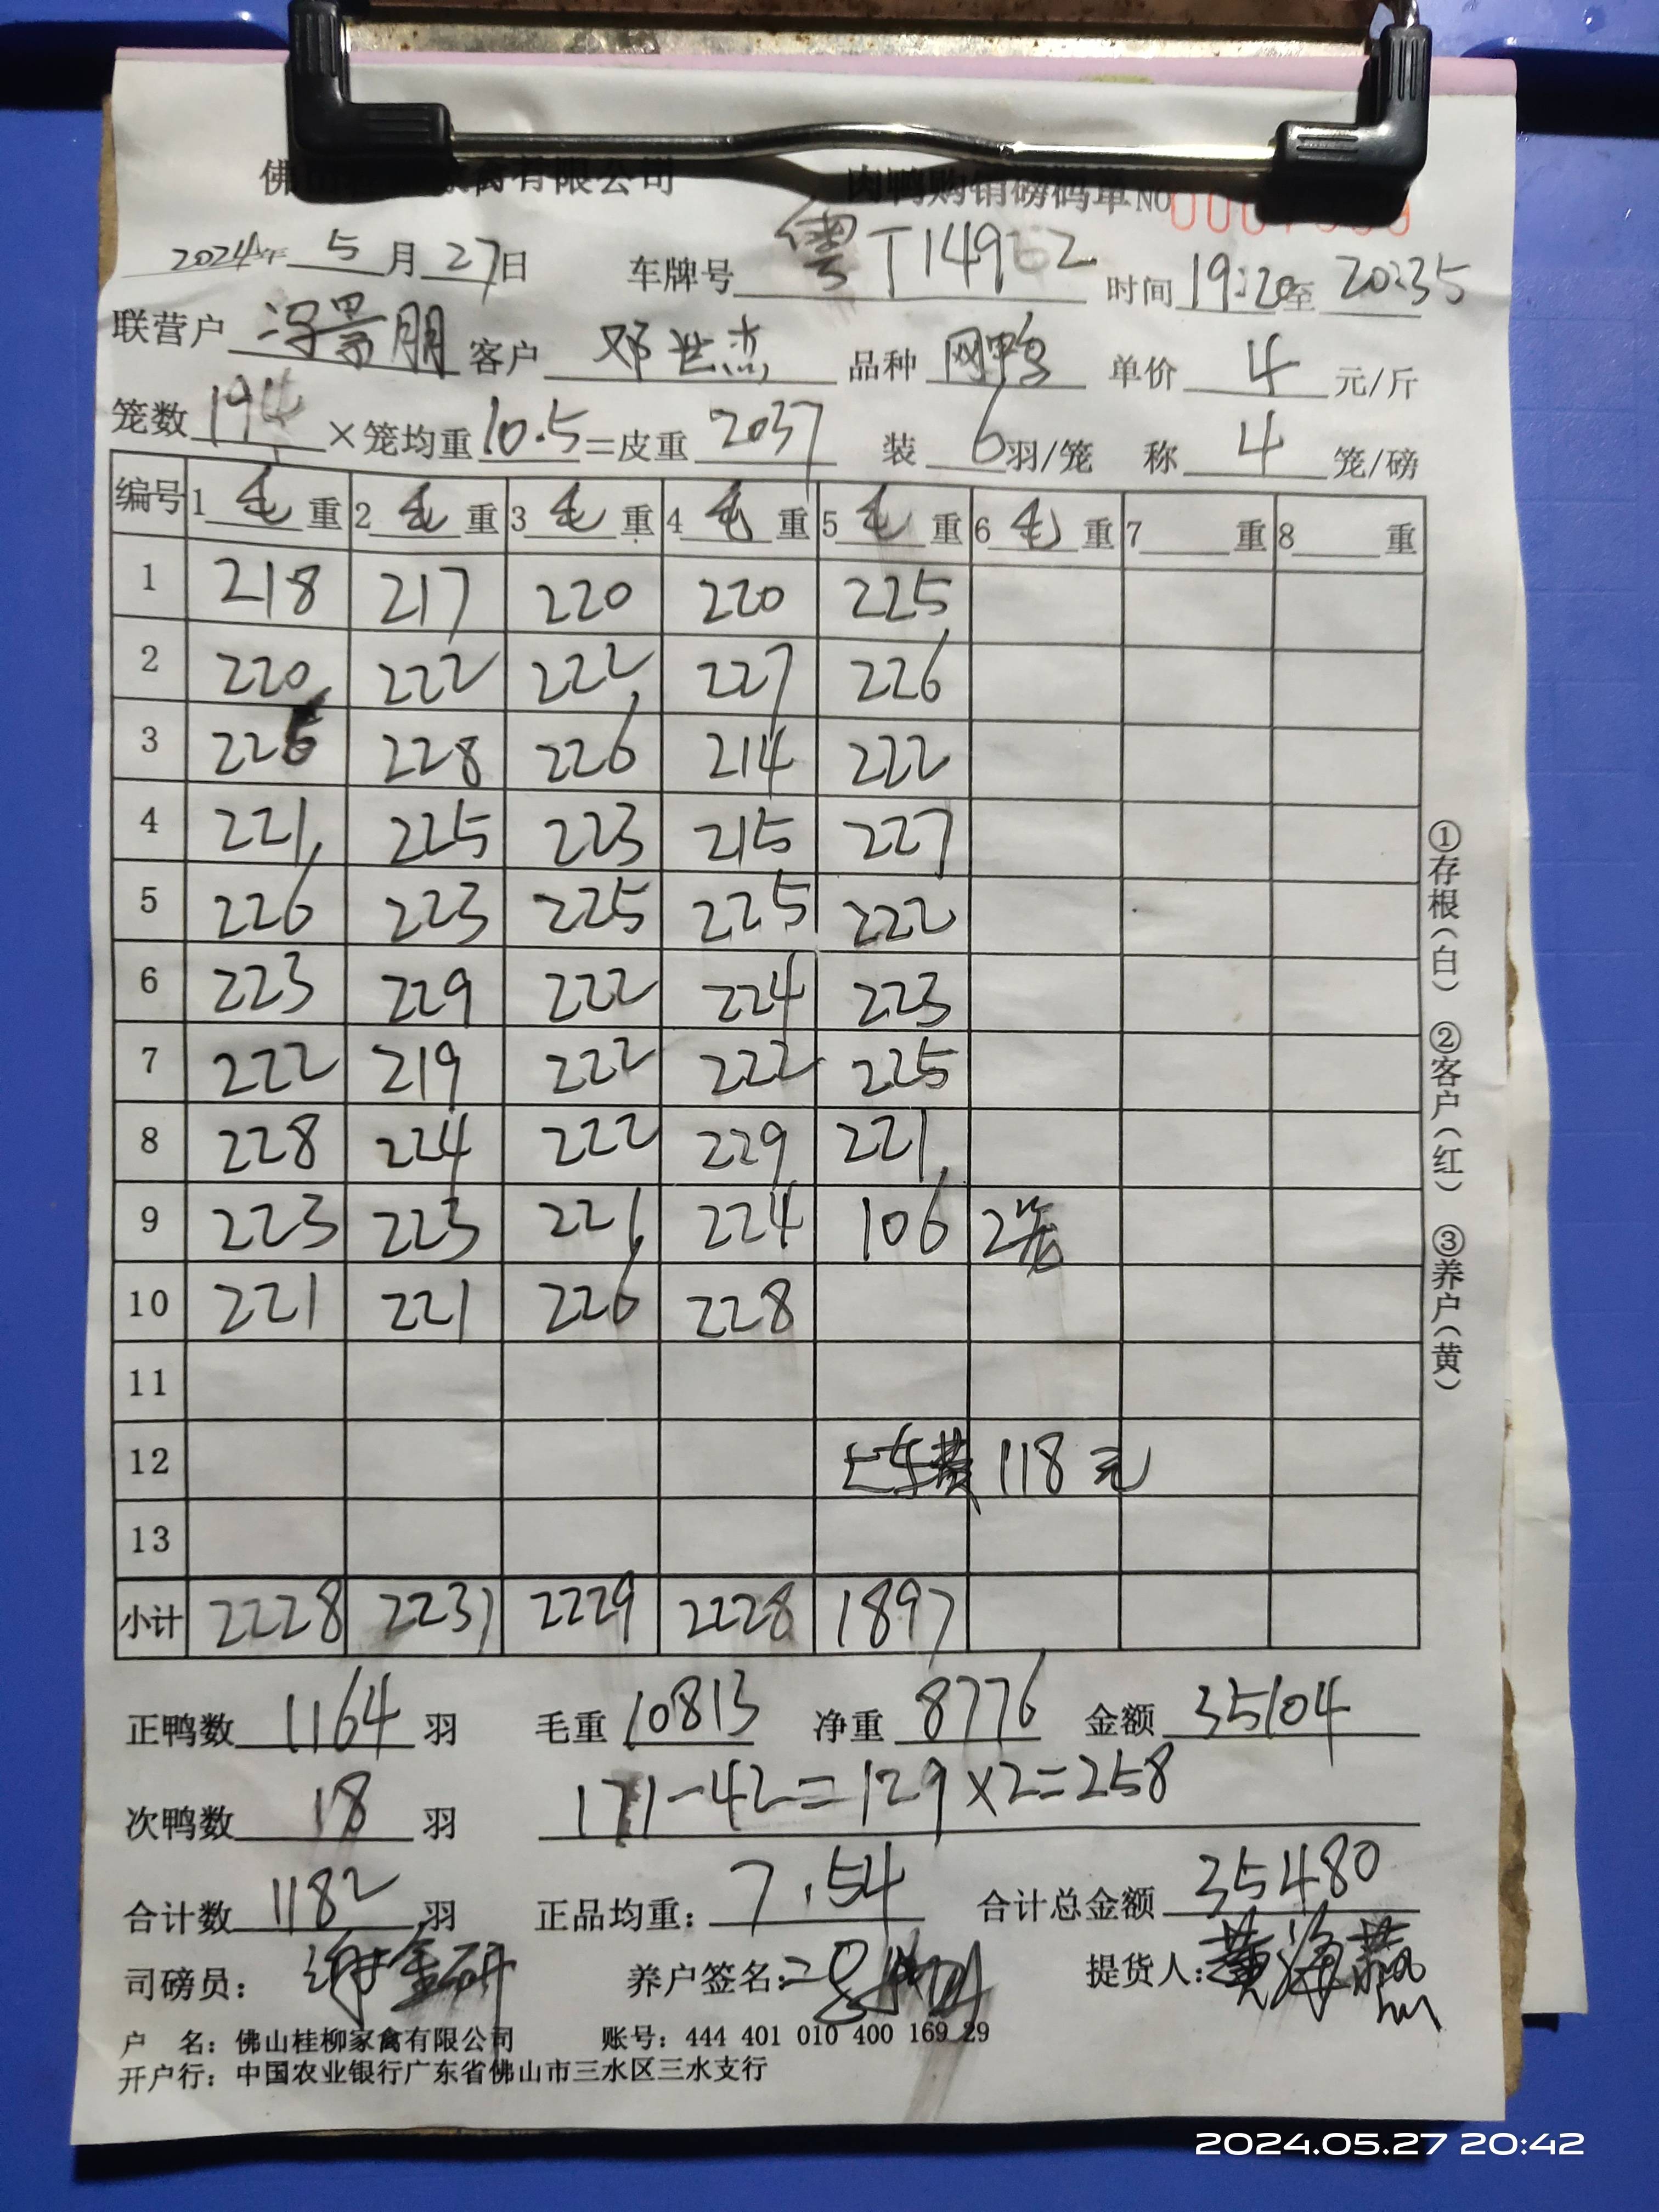 佛山 家禽有限公司 肉鸭购销磅码单 No
2024年 5 月 27 日 车牌号 粤T149 2 时间 19:20 至 20:35
联营户 冯景朋 客户 邓世杰 品种 网鸭 单价 4 元/斤
笼数 194 ×笼均重 10.5 =皮重 2037 装 6 羽/笼 称 4 笼/磅
编号 1 毛 重 2 毛 重 3 毛 重 4 毛 重 5 毛 重 6 毛 重 7 重 8 重
1 218 217 220 220 225
2 220 222 222 227 226
3 226 228 226 214 222
4 221 225 223 215 227
5 226 223 225 225 222
6 223 229 222 224 223
7 222 219 222 222 225
8 228 224 222 229 221
9 223 223 221 224 106 2笼
10 221 221 226 228
11
12 上车费 118元
13
小计 2228 2231 2229 2228 1897
正鸭数 1164 羽 毛重 10813 净重 8776 金额 35104
次鸭数 18 羽 171-42=129×2=258
合计数 1182 羽 正品均重: 7.54 合计总金额 35480
司磅员: 养户签名: 提货人: 黄海燕
户 名: 佛山桂柳家禽有限公司 账号: 444 401 010 400 169 29
开户行: 中国农业银行广东省佛山市三水区三水支行
①存根(白) ②客户(红) ③养户(黄)
2024.05.27 20:42